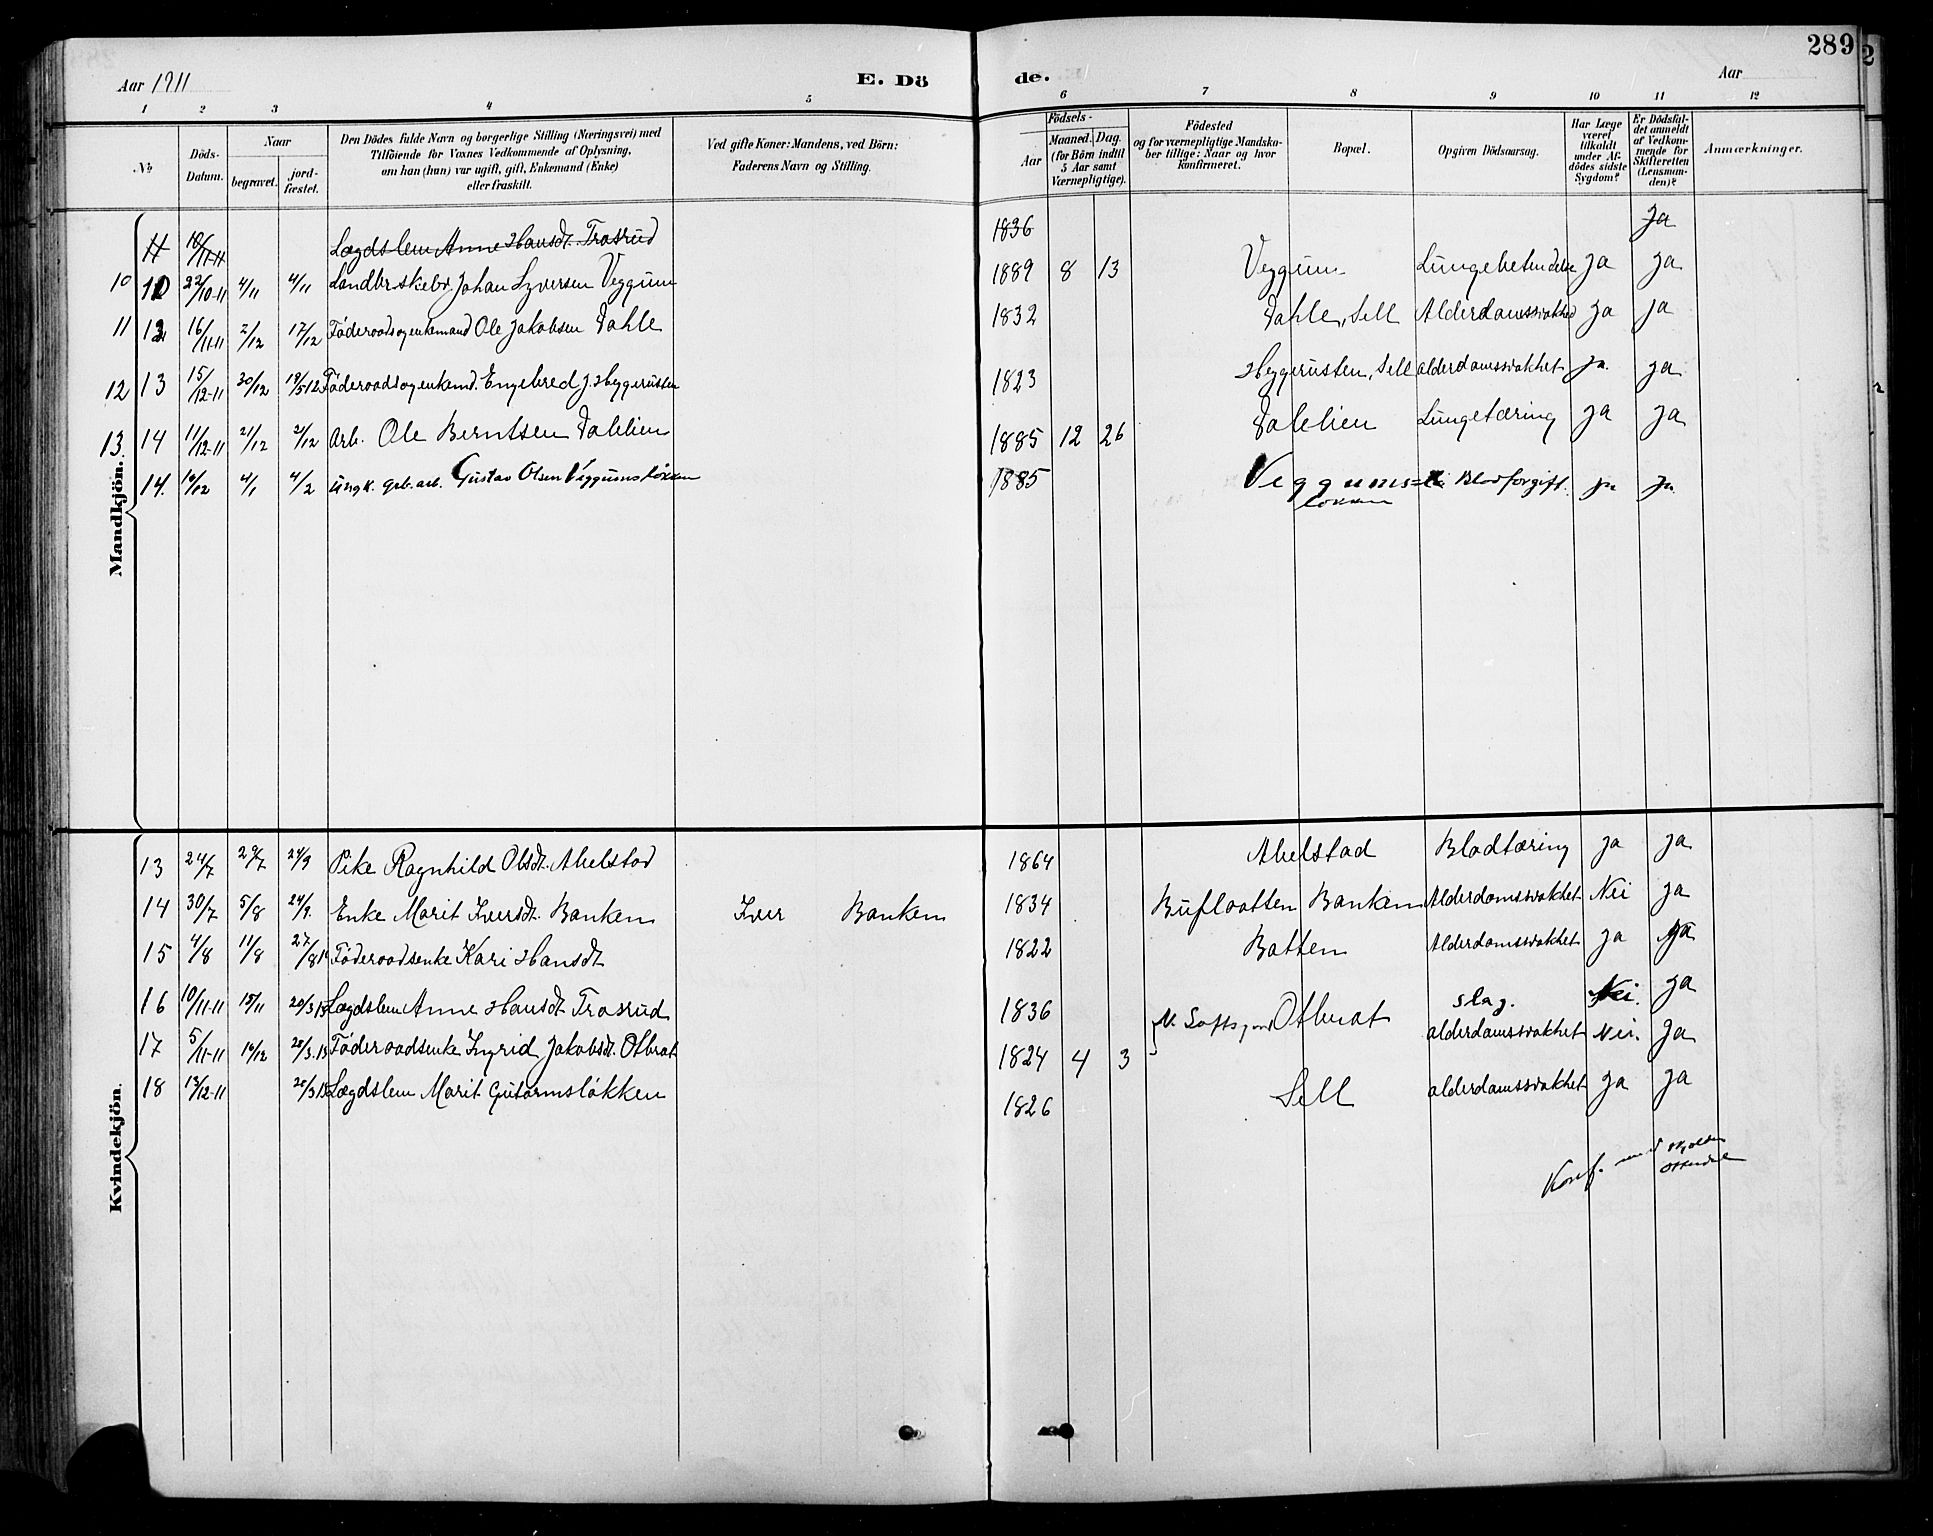 289
Aar 1911 E. Dö de. Aar
1 2 3 4 5 6 7 8 9 10 11 12
No
Döds-Datum.
Naar
begravet.
jord-fæstet.
Den Dödes fulde Navn og borgerlige Stilling (Næringsvei) med
Tilföiende for Voxnes Vedkommende af Oplysning,
om han (hun) var ugift, gift, Enkemand (Enke)
eller fraskilt.
Ved gifte Koner: Mandens, ved Börn:
Faderens Navn og Stilling.
Födsels-
Aar
Maaned. Dag.
(for Börn indtil
5 Aar samt
Værnepligtige).
Födested
og for værnepligtige Mandska-
ber tillige: Naar og hvor
konfirmeret.
Bopæl.
Opgiven Dödsaarsag.
Har Læge
været
tilkaldt
under Af-
dödes sidste
Sygdom?
Er Dödsfal-
det anmeldt
af Vedkom-
mende for
Skifteretten
(Lensman-
den)?
Anmærkninger.
Mandkjön.
11 10/11-11 Lægdslem Anne Hansdt. Trosrud 1836 Ja
10 22/10-11 4/11 4/11 Landbr.skebr. Johan Syversen Veggum 1889 8 13 Veggum Lungebetendelse Ja Ja
11 12 16/11-11 2/12 17/12 Föderaads og enkemand Ole Jakobsen Dahle 1832 Dahle, Sell Alderdomssvakhed Ja Ja
12 13 15/12-11 30/12 19/5 12 Föderaads og enkemd. Engebred J. Hyggerusten 1823 Hyggerusten, Sell alderdomssvakhet Ja. Ja
13. 14 11/12-11 21/12 21/12 Arb. Ole Berntsen Dahlien 1885 12 26 Dahlien Lungetæring Ja Ja
14. 16/12 4/1 4/2 Ungk. grb. arb. Gustav Olsen Veggumsløkken 1885 Veggums= Blodforgift. Ja Ja
løkken
Kvindekjön.
13 24/7 29/7 24/9 Pike Ragnhild Olsdt. Ahelstad 1864 Ahelstad Blodtæring Ja Ja
14 30/7 5/8 24/9. Enke Marit Iversdt. Banken Iver Banken 1834 Bufloatten Banken Alderdomssvakhet Nei Ja
15 4/8 11/8 27/8 Föderaadsenke Kari Hansdt 1822 Botten Alderdomssvakhet Ja Ja
16 10/11-11 15/11 20/3 Lægdslem Anne Hansdt Trosrud 1836 Otbrat slag. Nei. Ja
17 5/11-11 16/12 20/3. 13 Föderaadsenke Ingrid Jakobsdt. Otbrat 1824 4 3 alderdomssvakhet Nei. Ja
18 13/12-11 20/3 Lægdslem Marit Gutormsløkken 1826 Sell alderdomssvakhet Ja Ja
Konf. med